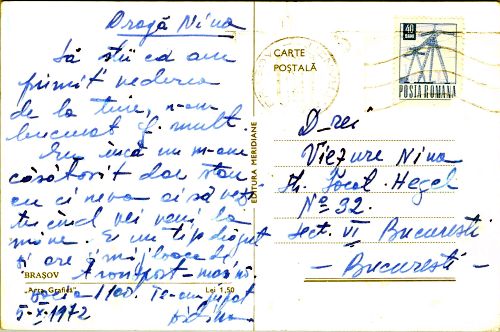 Dragă Nina
Să știi că am
primit vederea
de la tine, m-am
bucurat f. mult.
Eu încă nu m-am
căsătorit dar stau
cu cineva ai să vezi
tu când vei veni la
mine. E un tip drăguț
și are și mijloace de
transport - mașină
Dacia 1100. Te-am pupat
5-X-1972
BRAȘOV
„Arta Grafică”
Lei 1,50
EDITURA MERIDIANE
CARTE
POȘTALĂ
40
BANI
POSTA ROMANA
D-rei
Viezure Nina
Str. Focol. Hegel
No 32.
Sect. VI București
- București -